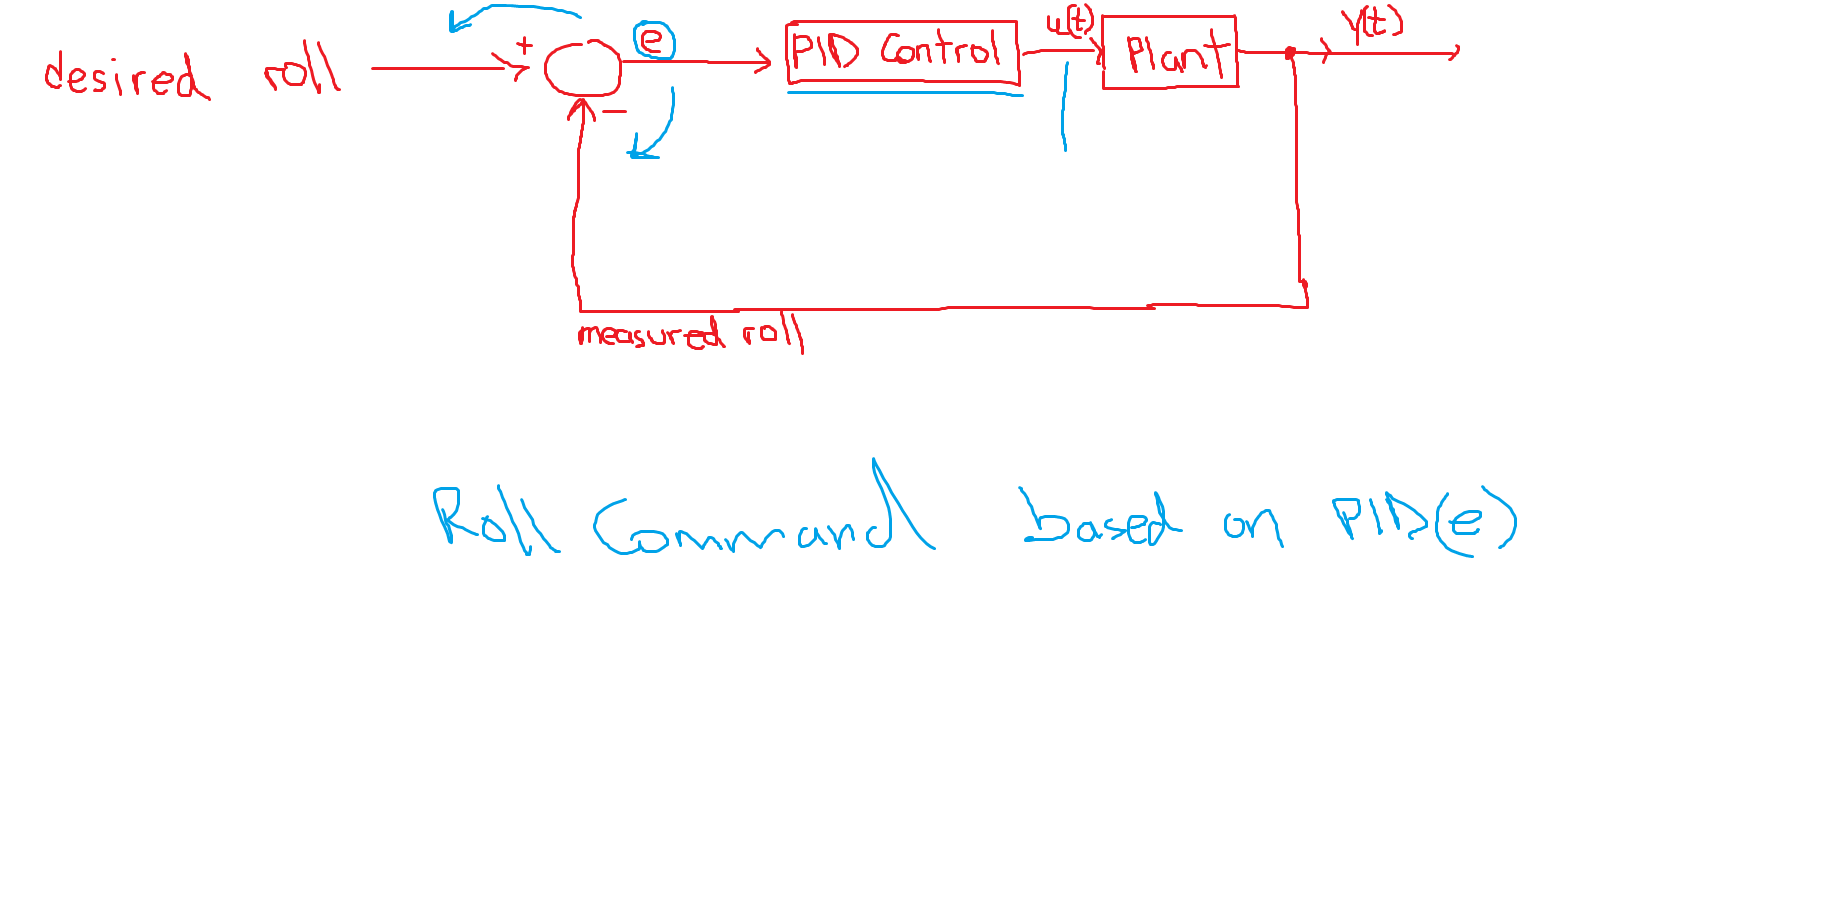 desired roll
+
e
PID Control
u(t)
Plant
y(t)
−
measured roll
Roll Command based on PID(e)